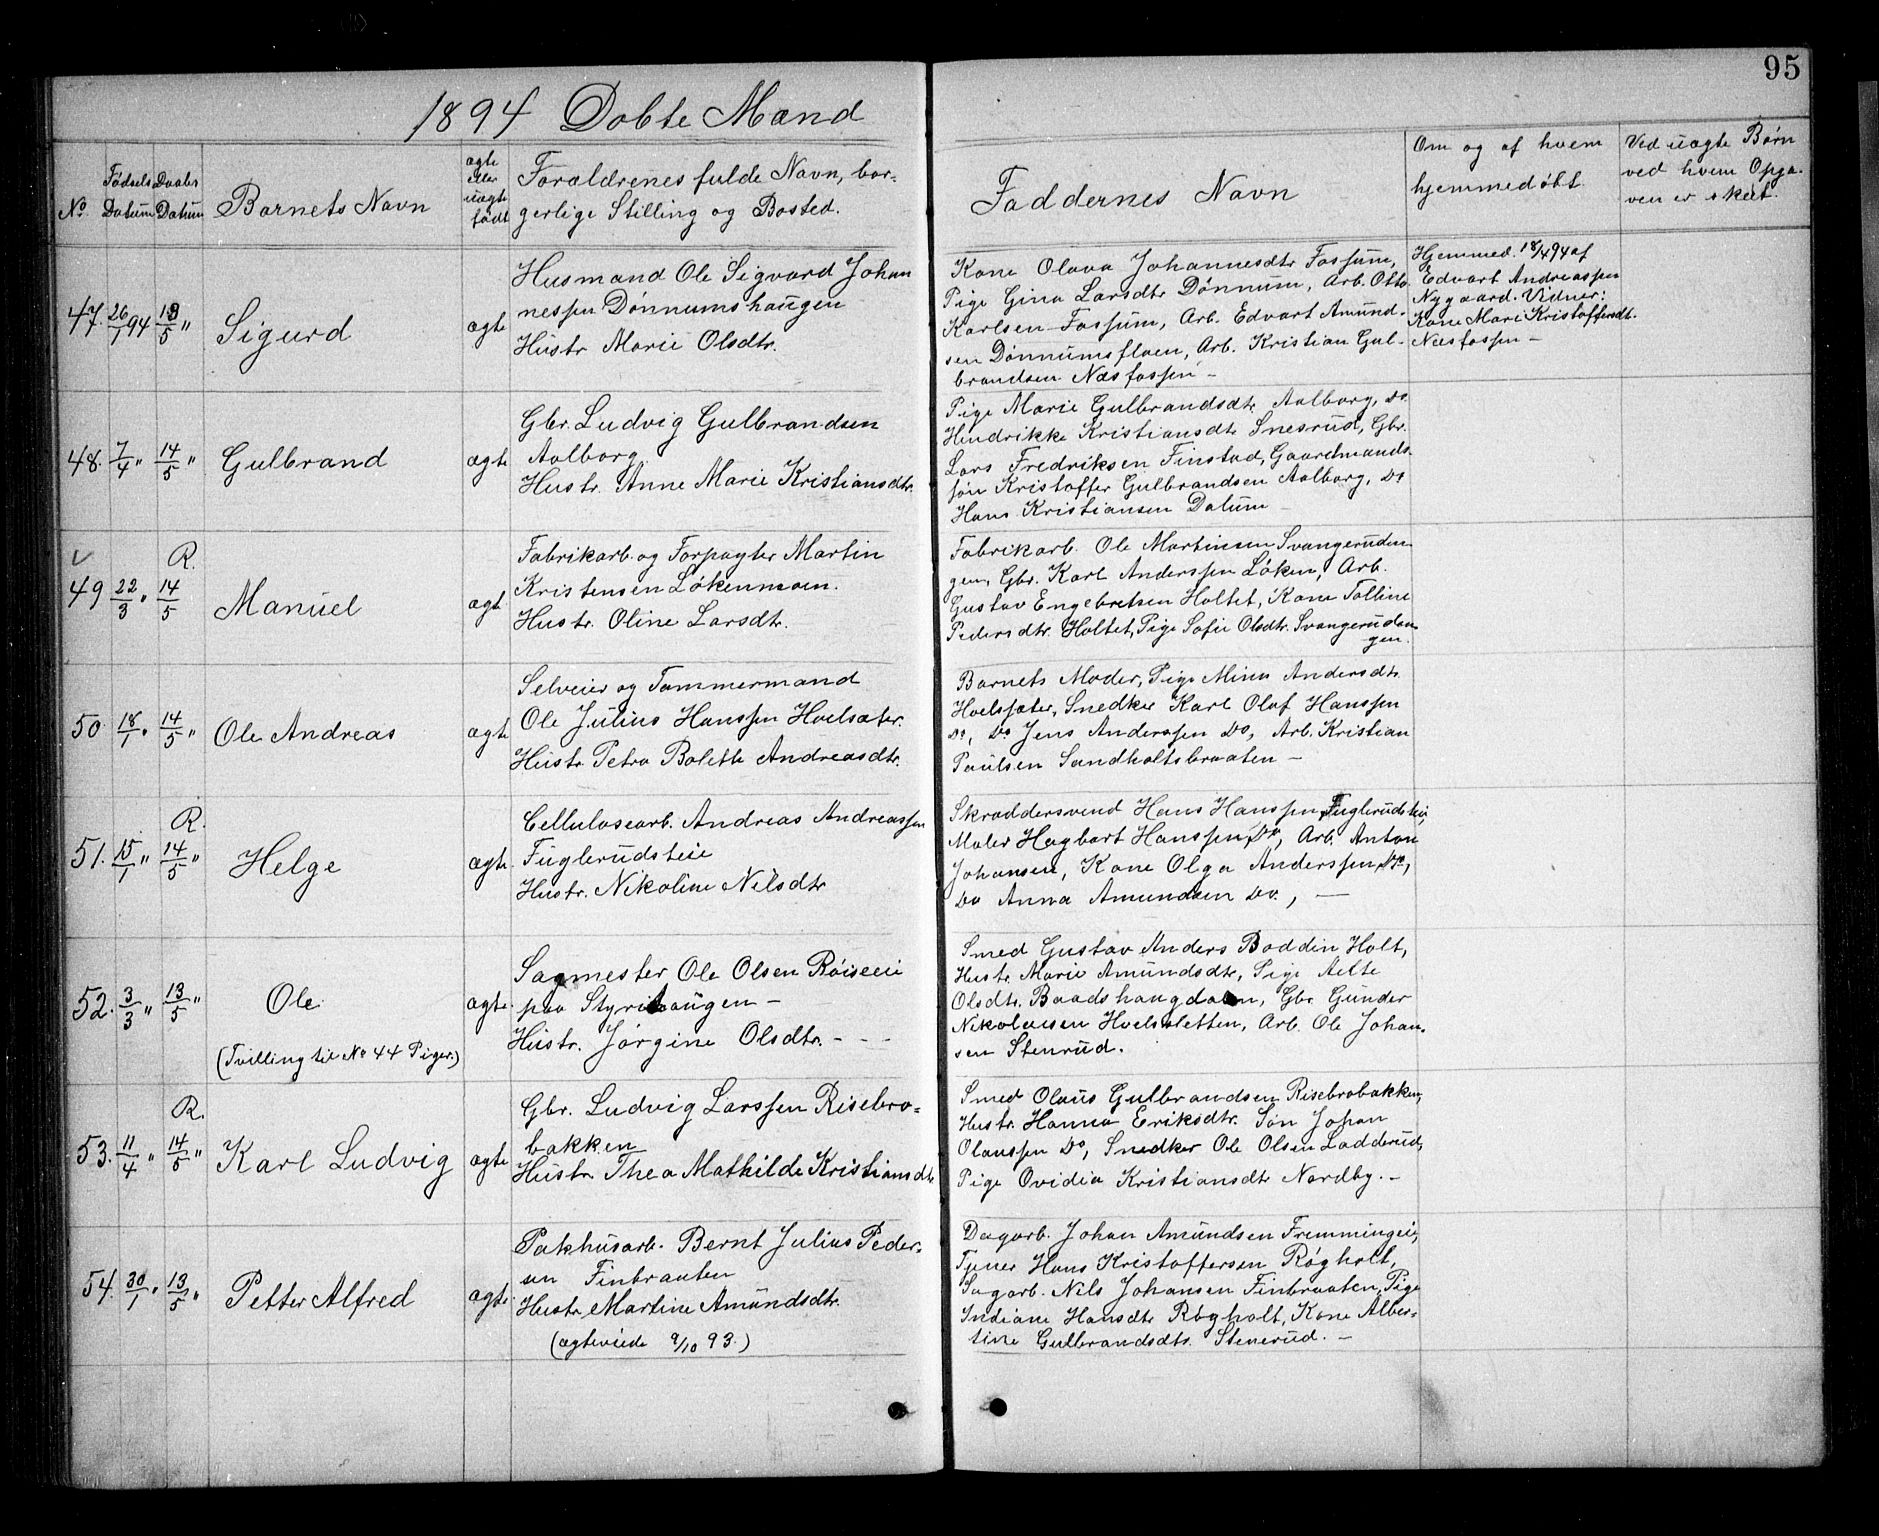 95
1894 Døbte Mænd
No.
Fødsels Datum
Daabs Datum
Barnets Navn
ægte eller uægte født
Forældrenes fulde Navn, bor-
gerlige Stilling og Bosted.
Faddernes Navn
Om og af hvem
hjemmedøbt.
Ved uægte Børn
ved hvem Opga-
ven er skeet.
47. 26/1 94 13/5 "
Sigurd
ægte
Husmand Ole Sigvard Johan
nessen Dønnumshaugen
Hustr. Marie Olsdtr.
Kone Olava Johannesdtr Fossum,
Pige Gina Larsdtr Dønnum, Arb. Otto
Karlsen Fossum, Arb. Edvart Amund-
sen Dønnumsfloen, Arb. Kristian Gul-
brandsen Næsfossen -
Hjemmed. 18/4 94 af
Edvart Andreassen
Nygaard. Vidner:
Kone Mari Kristoffersdt.
Næsfossen -
48. 7/4 " 14/5 "
Gulbrand
ægte
Gbr. Ludvig Gulbrandsen
Aalborg.
Hustr. Anne Marie Kristiansdtr.
Pige Marie Gulbrandsdtr Aalborg, Do.
Hendrikke Kristiansdtr Snesrud, Gbr.
Lars Fredriksen Finstad, Gaardmands-
søn Kristoffer Gulbrandsen Aalborg, Do
Hans Kristiansen Dalum -
v
R.
49 22/3 " 14/5
Manuel
ægt.
Fabrikarb. og Forpagter Martin
Kristensen Løkenmoen.
Hustr. Oline Larsdtr.
Fabrikarb. Ole Martinsen Svangeruden-
gen, Gbr. Karl Anderssen Løken, Arb.
Gustav Engebretsen Holtet, Kone Tolline
Pedersdtr. Holtet, Pige Sofie Olsdtr. Svangeruden
gen.
50. 18/1 " 14/5 "
Ole Andreas
ægte
Selveier og Tømmermand
Ole Julius Hanssen Hoelsæter.
Hustr. Petra Bolette Andreasdtr.
Barnets Moder, Pige Mina Andersdtr
Hoelsæter, Snedker Karl Olaf Hanssen
Do, Do Jens Anderssen Do, Arb. Kristian
Paulsen Sandholtsbraaten -
R.
51. 15/1 " 14/5 "
Helge
ægte.
Cellulosearb. Andreas Andreassen
Fuglerudsteie
Hustr. Nikoline Nilsdtr
Skræddersvend Hans Hanssen, Fuglerudsteie,
Maler Hagbart Hanssen, Do, Arb. Anton
Johansen, Kone Olga Anderssen, Do,
Do Anna Amundsen Do., -
52. 3/3 " 13/5 "
Ole
(Tvilling til No 44 Piger.)
ægte.
Sagmester Ole Olsen Røiseeie
paa Styrihaugen -
Hustr. Jørgine Olsdtr. - - -
Smed Gustav Anders Boddin Holt,
Hustr. Marie Amundsdtr, Pige Aette
Olsdtr. Baadshaugdalen, Gbr. Gunder
Nikolaisen Hoelsletten, Arb. Ole Johan-
sen Stenrud.
R.
53. 11/4 " 14/5 "
Karl Ludvig
ægte
Gbr. Ludvig Larssen Risebro-
bakken
Hustr. Thea Mathilde Kristiansdtr
Smed Olaus Gulbrandsen Risebrobakken,
Hustr. Hanna Eriksdtr. Søn Johan
Olaussen Do, Snedker Ole Olsen Ladderud,
Pige Ovidia Kristiansdtr Nordby. -
54. 30/1 " 13/5 "
Petter Alfred
ægte.
Pakhusarb. Bernt Julius Peder-
sen Finbraaten
Hustr. Martine Amundsdtr.
(ægteviede 9/10 93.)
Dagarb. Johan Amundsen Fremmingeie,
Tjener Hans Kristoffersen Røgholt,
Sagarb. Nils Johansen Finbraaten, Pige
Indiane Hansdtr Røgholt, Kone Alber-
tine Gulbrandsdtr. Stenerud. -